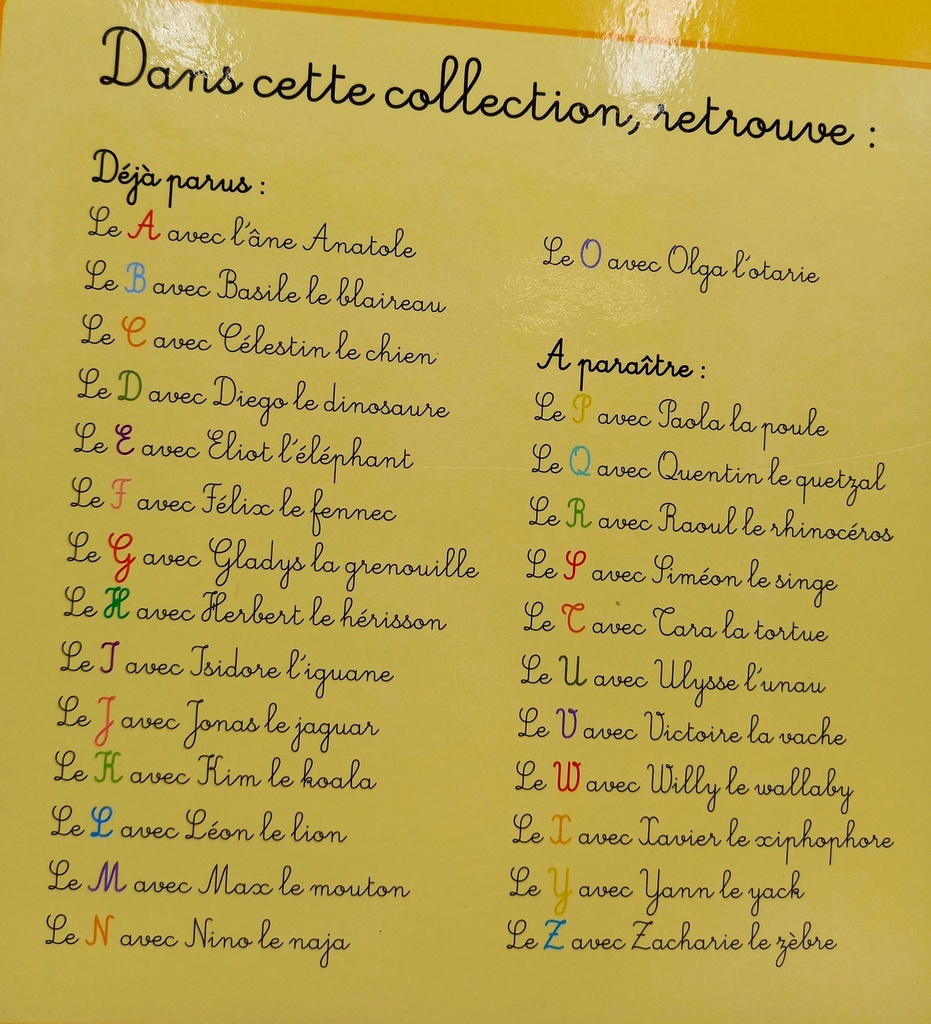 Dans cette collection, retrouve :
Déjà parus :
Le A avec l'âne Anatole
Le B avec Basile le blaireau
Le C avec Célestin le chien
Le D avec Diego le dinosaure
Le E avec Eliot l'éléphant
Le F avec Félix le fennec
Le G avec Gladys la grenouille
Le H avec Herbert le hérisson
Le I avec Isidore l'iguane
Le J avec Jonas le jaguar
Le K avec Kim le koala
Le L avec Léon le lion
Le M avec Max le mouton
Le N avec Nino le naja
Le O avec Olga l'otarie
A paraître :
Le P avec Paola la poule
Le Q avec Quentin le quetzal
Le R avec Raoul le rhinocéros
Le S avec Siméon le singe
Le T avec Tara la tortue
Le U avec Ulysse l'unau
Le V avec Victoire la vache
Le W avec Willy le wallaby
Le X avec Xavier le xiphophore
Le Y avec Yann le yack
Le Z avec Zacharie le zèbre